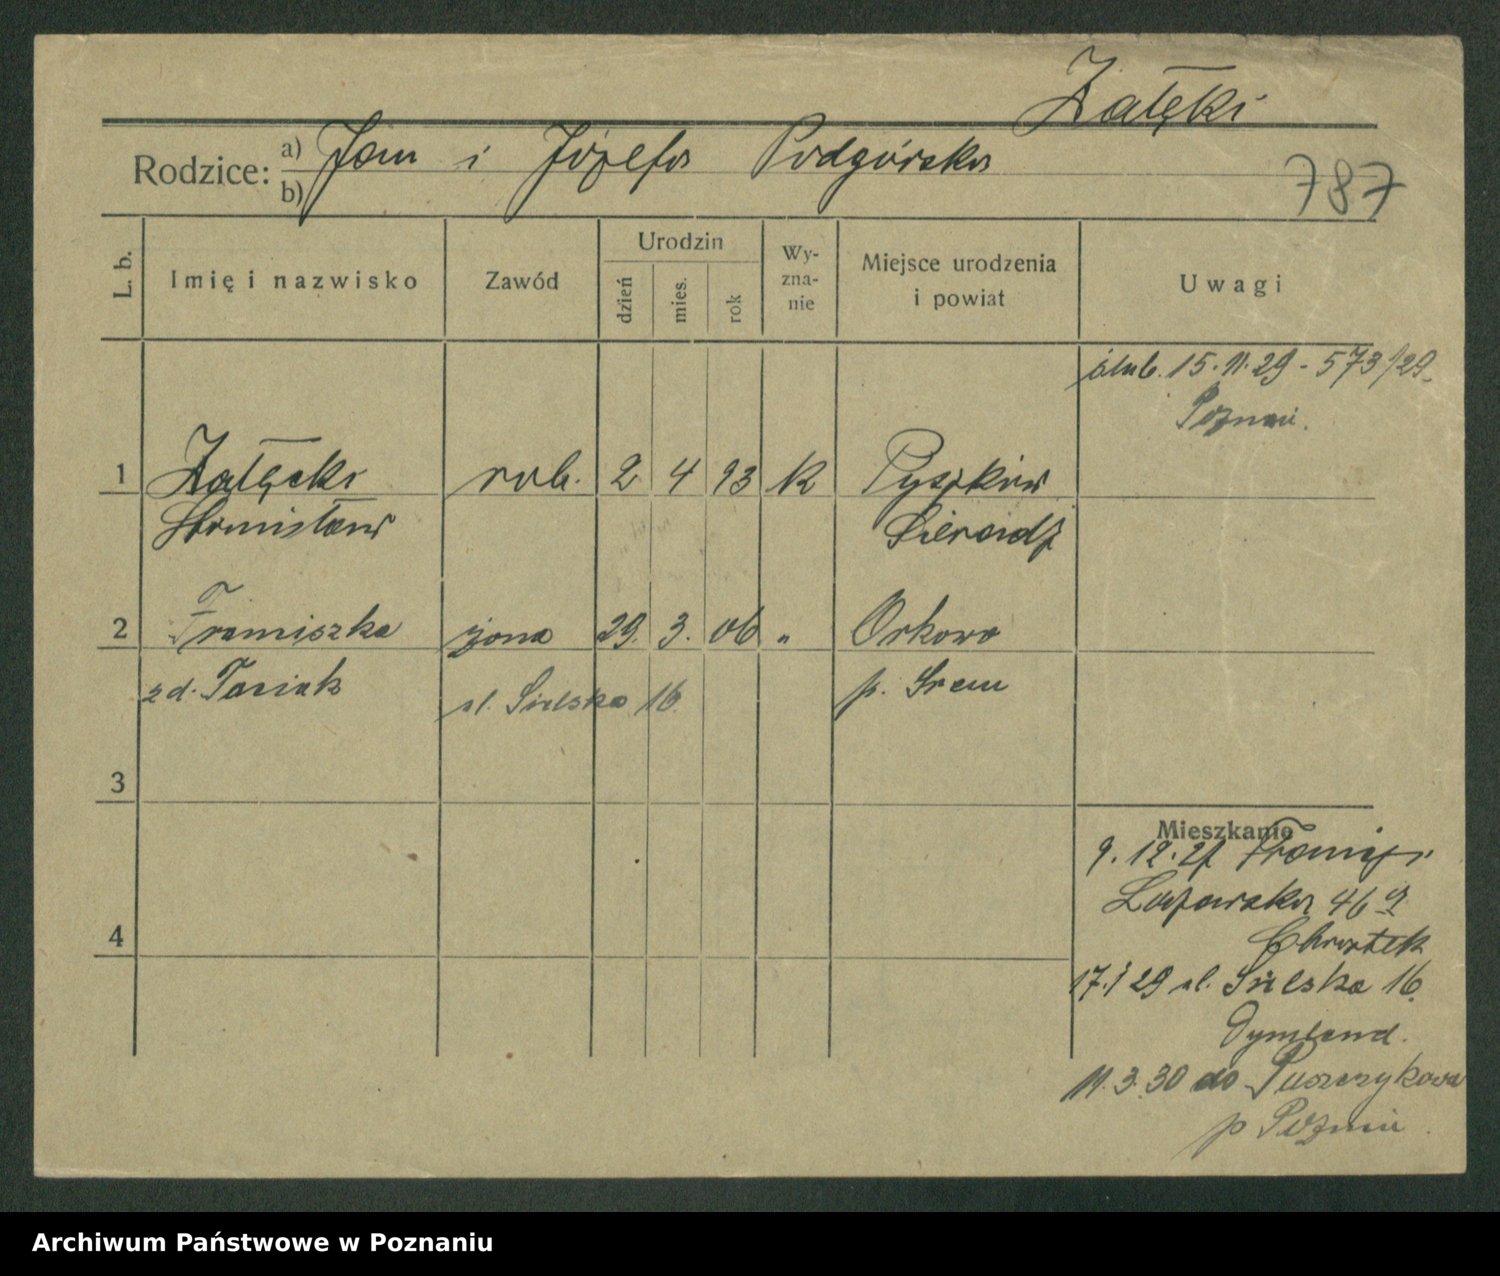 Załęcki
Rodzice: a) Jan i Józefa Podgórska
b)
787
L. b.
Imię i nazwisko
Zawód
Urodzin
dzień
mies.
rok
Wy-
zna-
nie
Miejsce urodzenia
i powiat
Uwagi
ślub. 15.11.29 - 573/29
Poznań.
1 Załęcki rob. 2 4 93 K Pyszków
Stanisław Sieradz
2 Franciszka żona 29. 3. 06 " Orkowo
zd. Tasiak ul. Sielska 16. p. Śrem
3
Mieszkanie
9.12.27
Łazarska 46
4
Chrostek
17. 29 ul. Sielska 16.
Dymland.
11.3.30 do Puszczykowa
p Poznań.
Archiwum Państwowe w Poznaniu